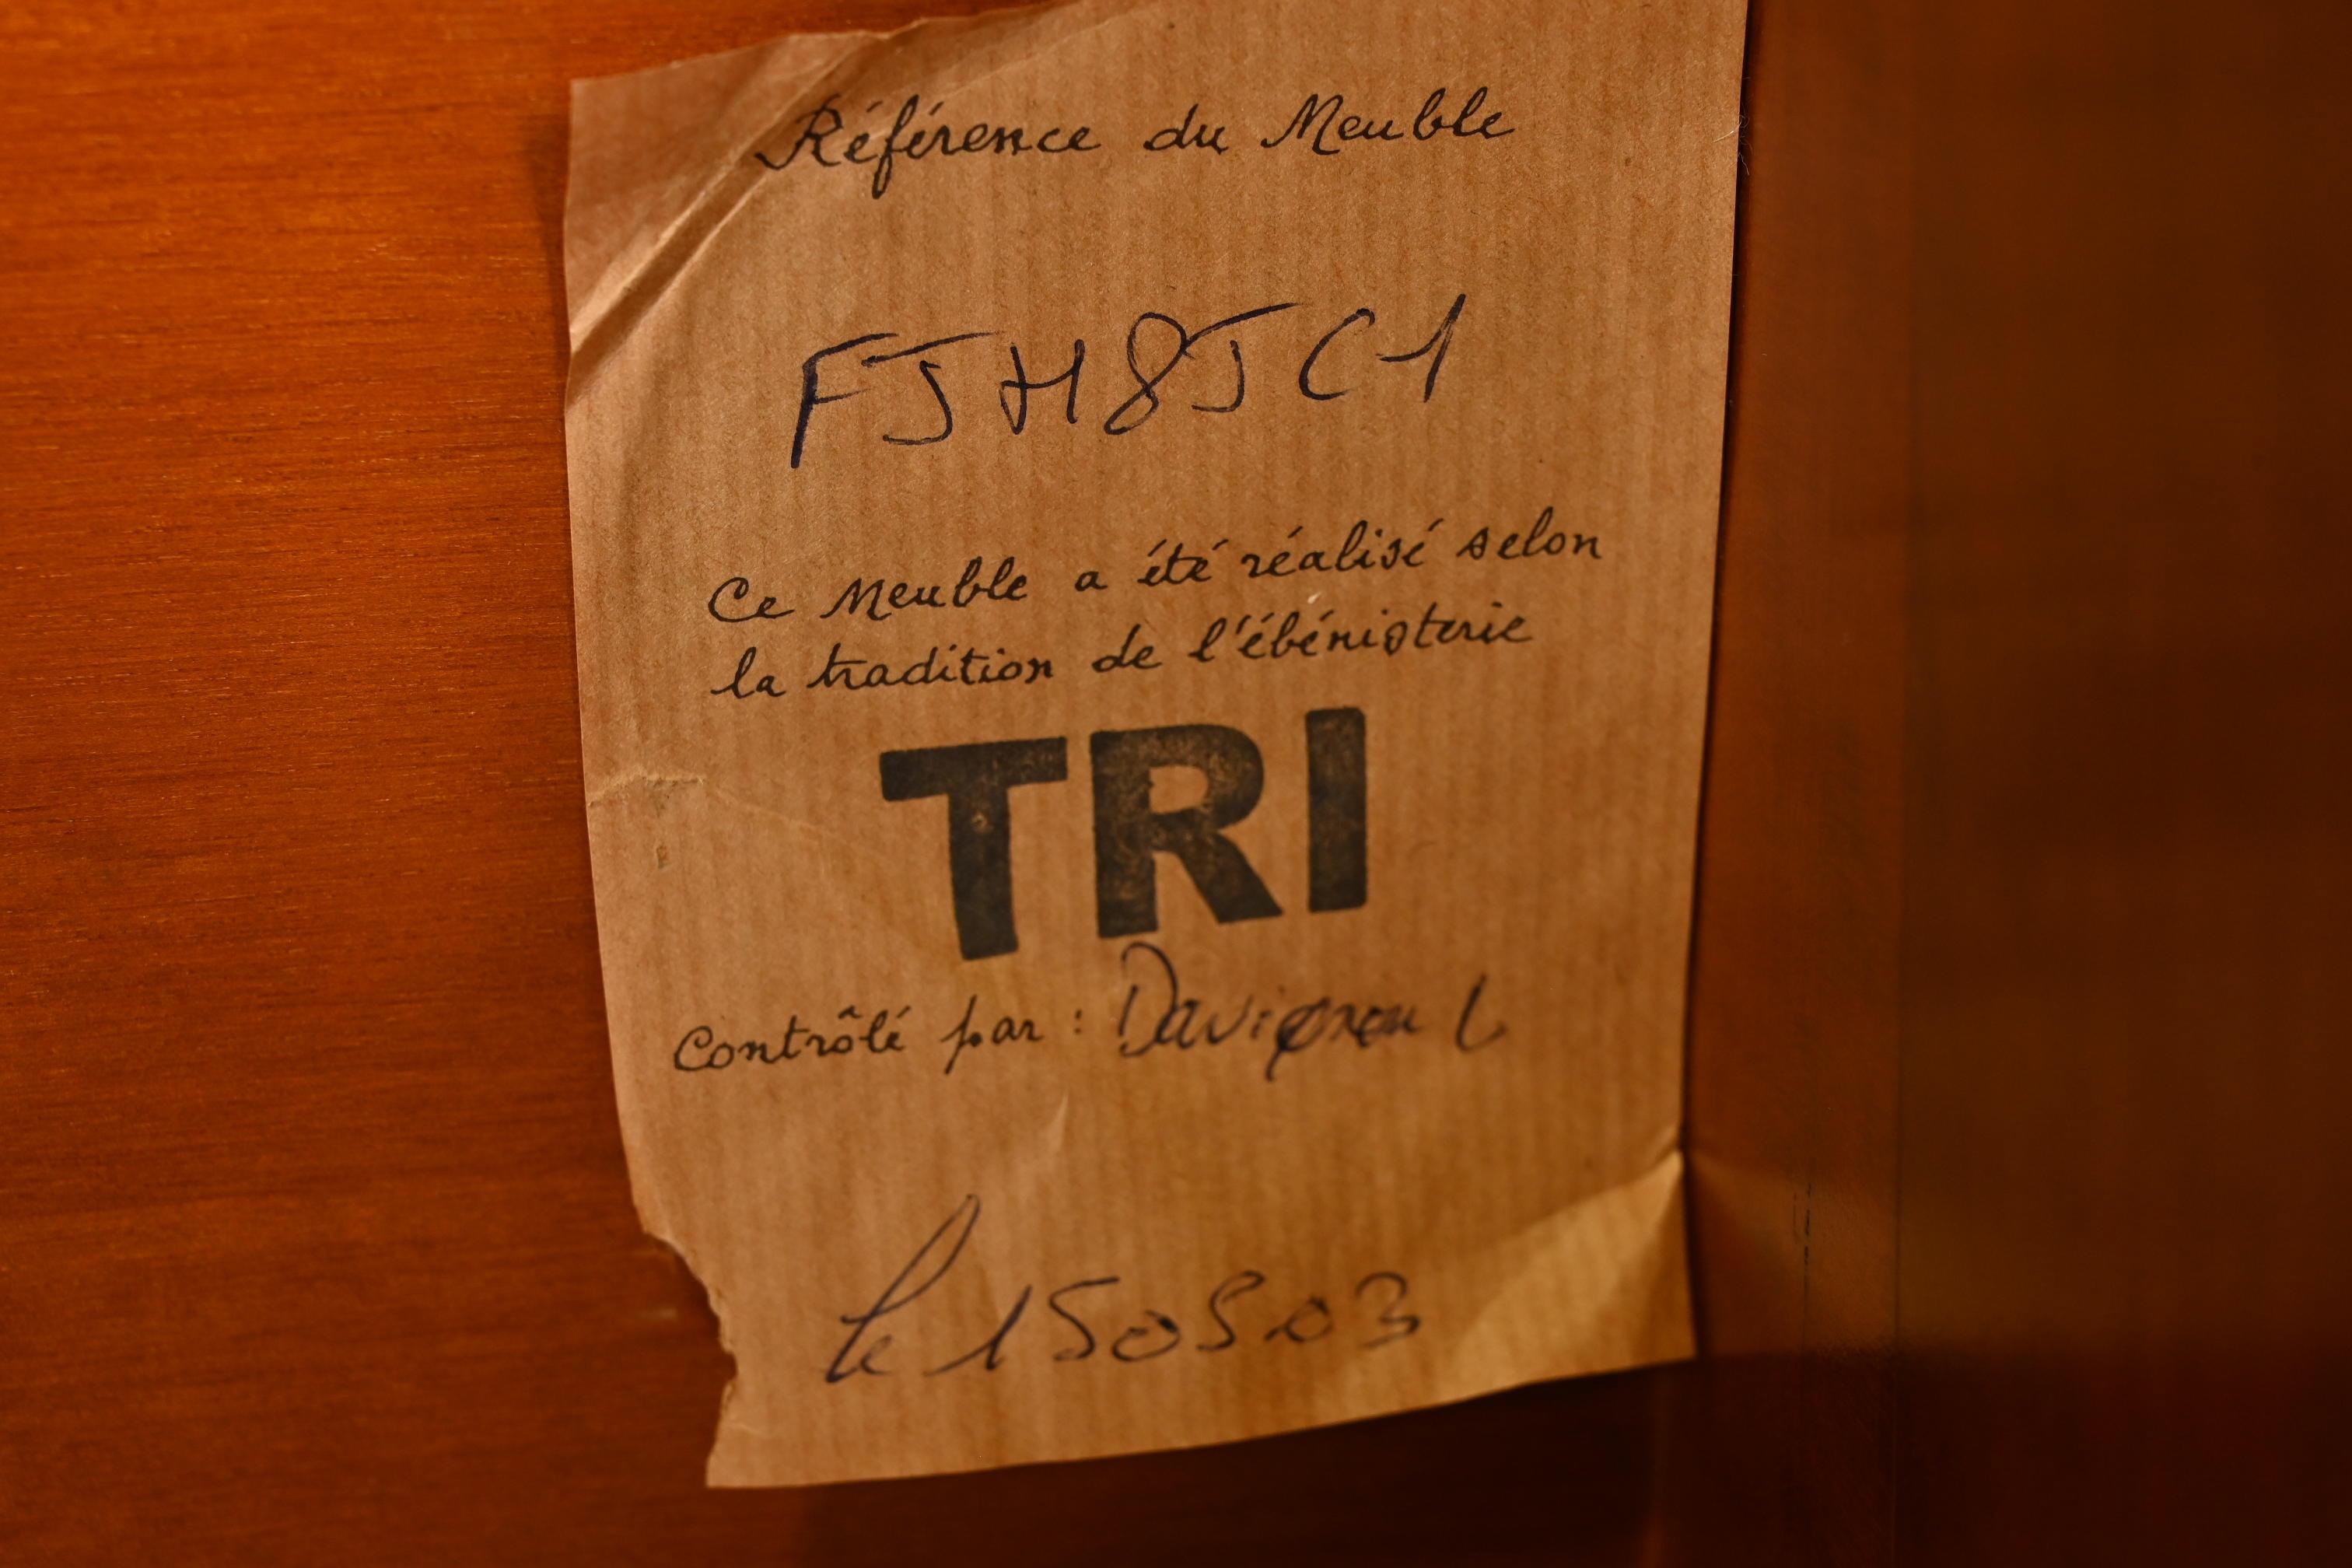 Référence du Meuble
FJH8JC1
Ce Meuble a été réalisé selon
la tradition de l'ébénisterie
TRI
Contrôlé par : L
le 150503